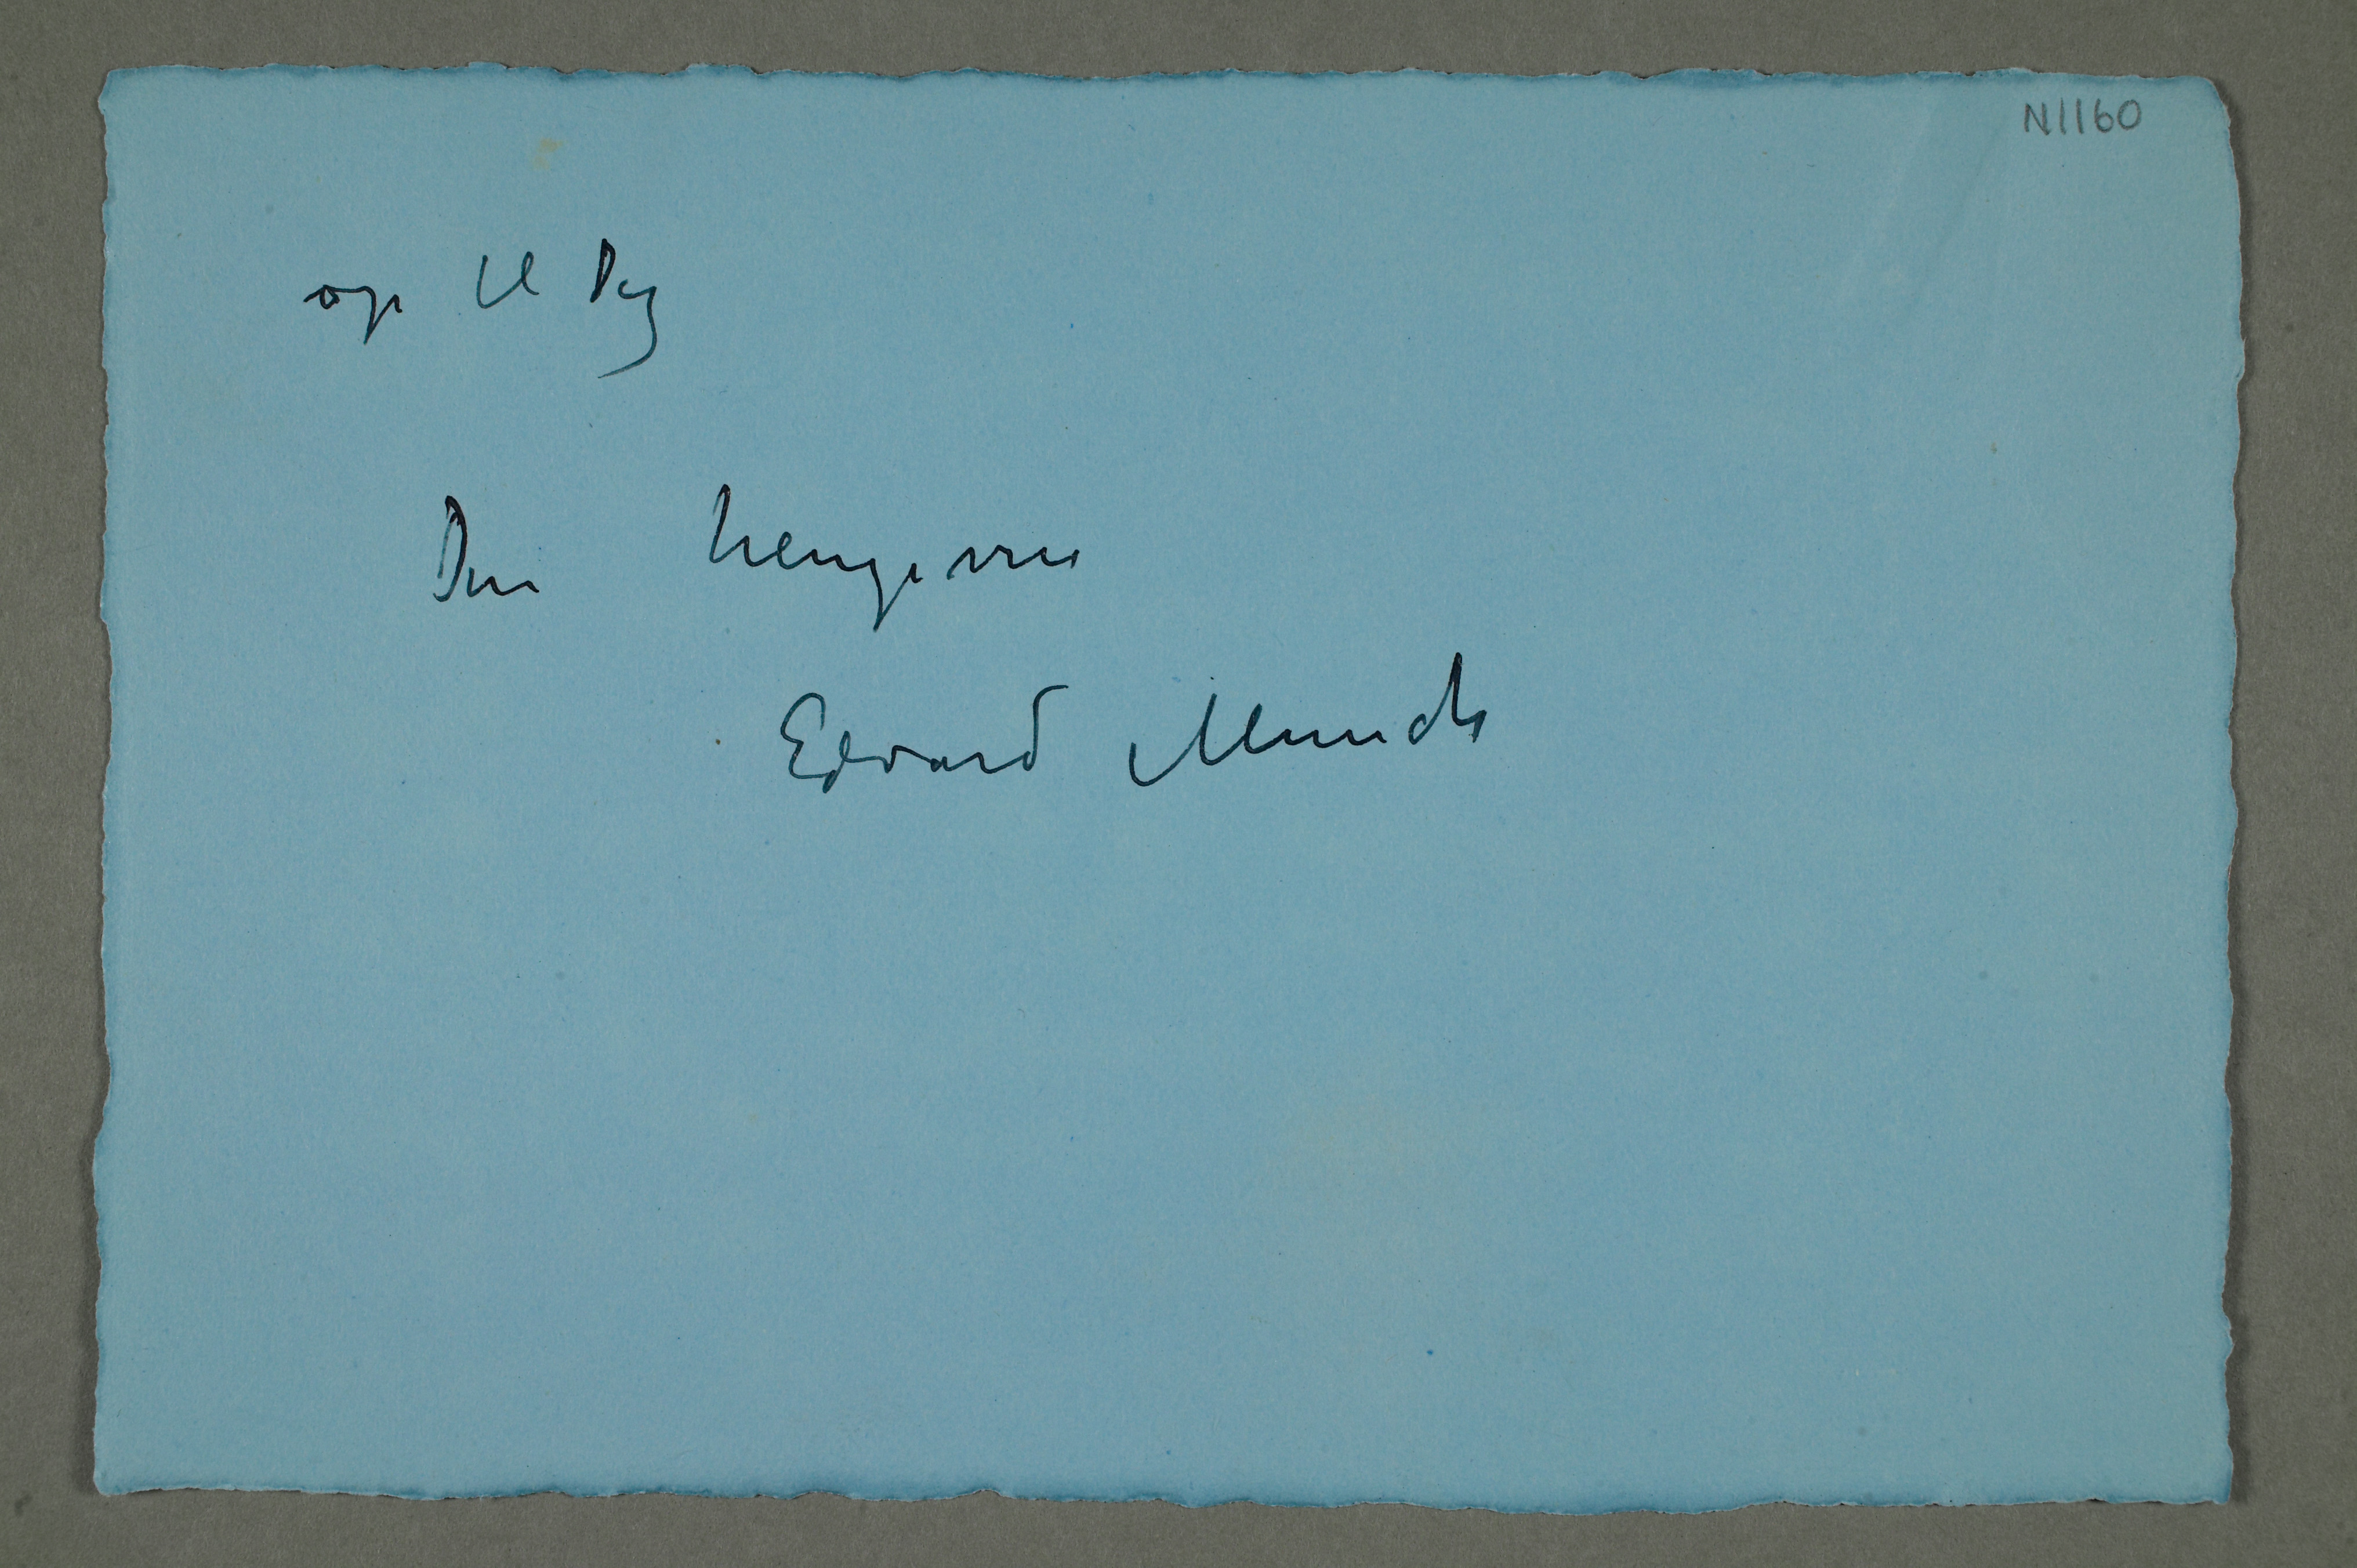 N1160
og til Dig
Din hengivne
Edvard Munch